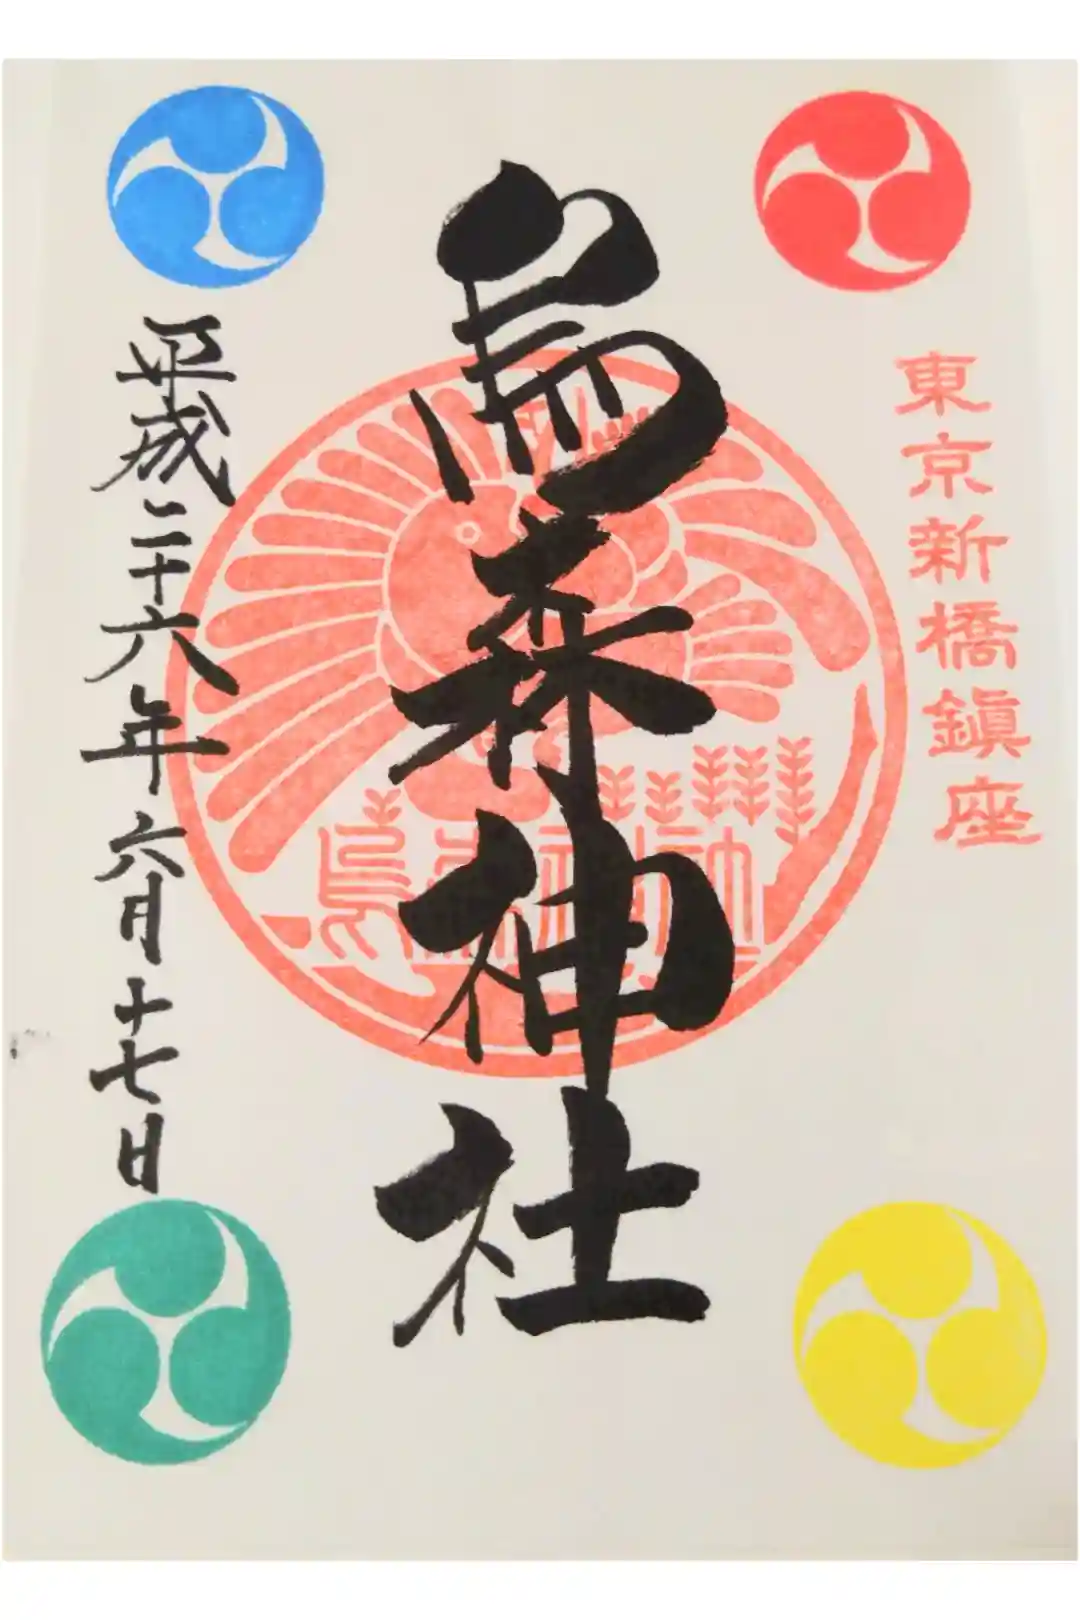 東京新橋鎮座
烏森神社
烏森神社
平成二十六年六月十七日